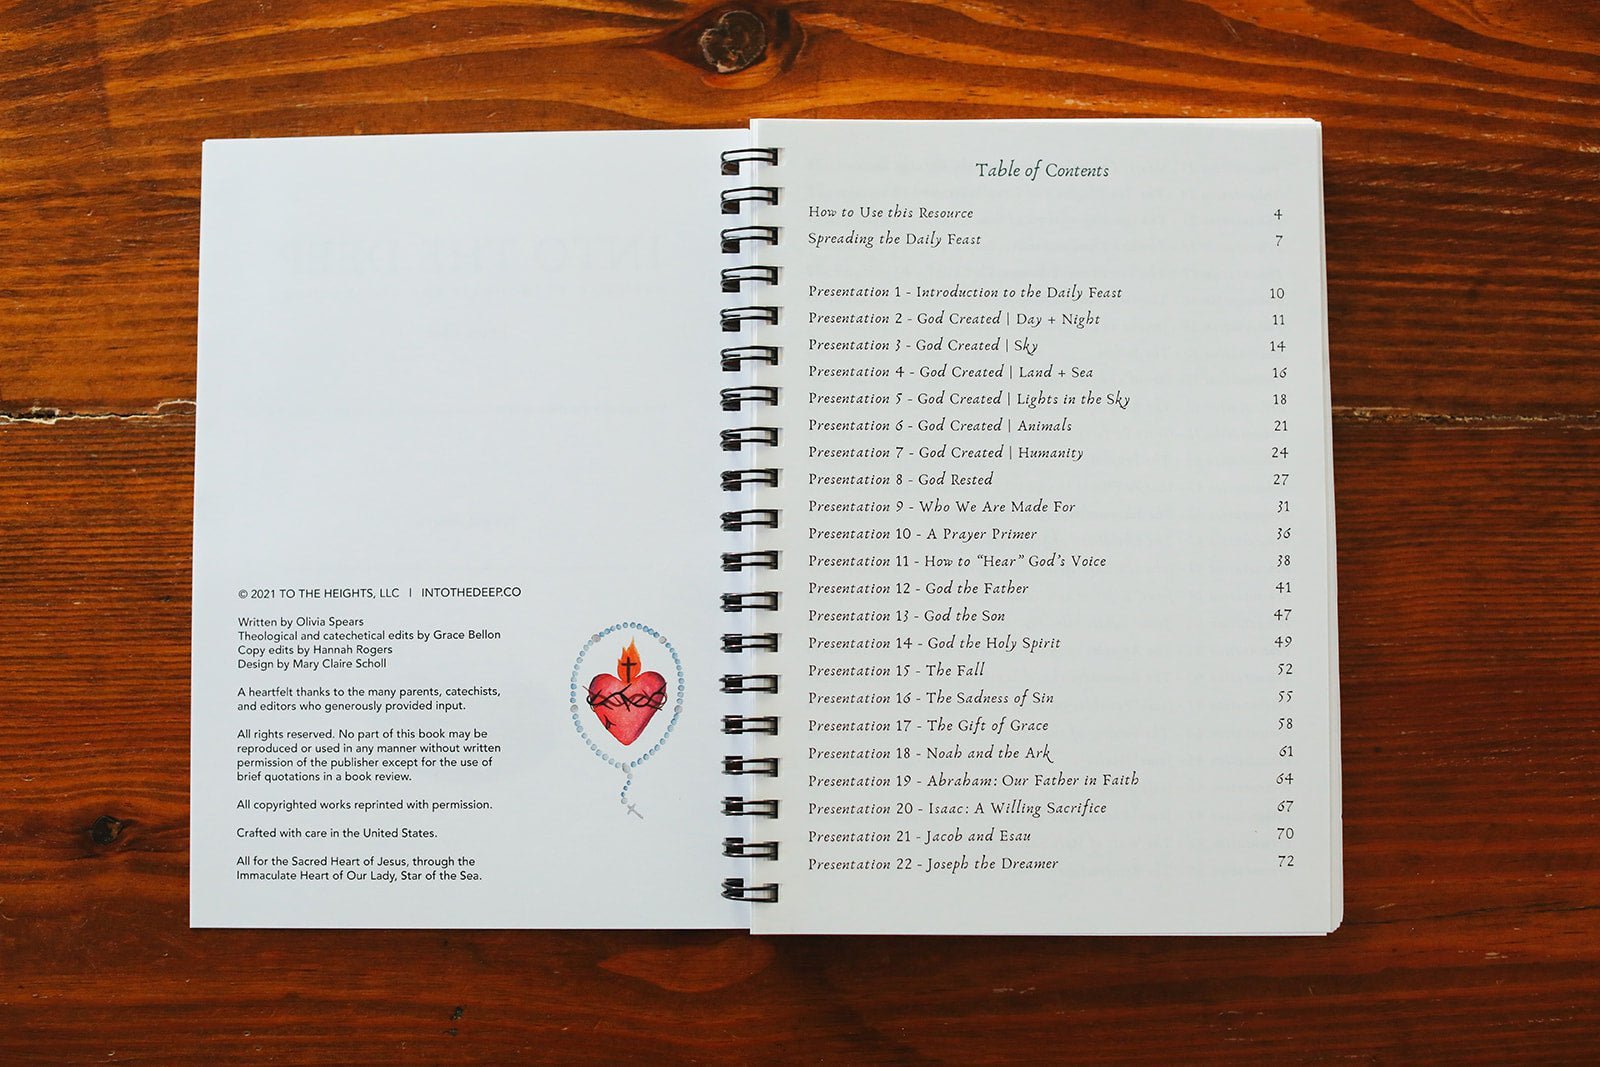 © 2021 TO THE HEIGHTS, LLC | INTOTHEDEEP.CO
Written by Olivia Spears
Theological and catechetical edits by Grace Bellon
Copy edits by Hannah Rogers
Design by Mary Claire Scholl
A heartfelt thanks to the many parents, catechists,
and editors who generously provided input.
All rights reserved. No part of this book may be
reproduced or used in any manner without written
permission of the publisher except for the use of
brief quotations in a book review.
All copyrighted works reprinted with permission.
Crafted with care in the United States.
All for the Sacred Heart of Jesus, through the
Immaculate Heart of Our Lady, Star of the Sea.
Table of Contents
How to Use this Resource 4
Spreading the Daily Feast 7
Presentation 1 - Introduction to the Daily Feast 10
Presentation 2 - God Created | Day + Night 11
Presentation 3 - God Created | Sky 14
Presentation 4 - God Created | Land + Sea 16
Presentation 5 - God Created | Lights in the Sky 18
Presentation 6 - God Created | Animals 21
Presentation 7 - God Created | Humanity 24
Presentation 8 - God Rested 27
Presentation 9 - Who We Are Made For 31
Presentation 10 - A Prayer Primer 36
Presentation 11 - How to “Hear” God’s Voice 38
Presentation 12 - God the Father 41
Presentation 13 - God the Son 47
Presentation 14 - God the Holy Spirit 49
Presentation 15 - The Fall 52
Presentation 16 - The Sadness of Sin 55
Presentation 17 - The Gift of Grace 58
Presentation 18 - Noah and the Ark 61
Presentation 19 - Abraham: Our Father in Faith 64
Presentation 20 - Isaac: A Willing Sacrifice 67
Presentation 21 - Jacob and Esau 70
Presentation 22 - Joseph the Dreamer 72